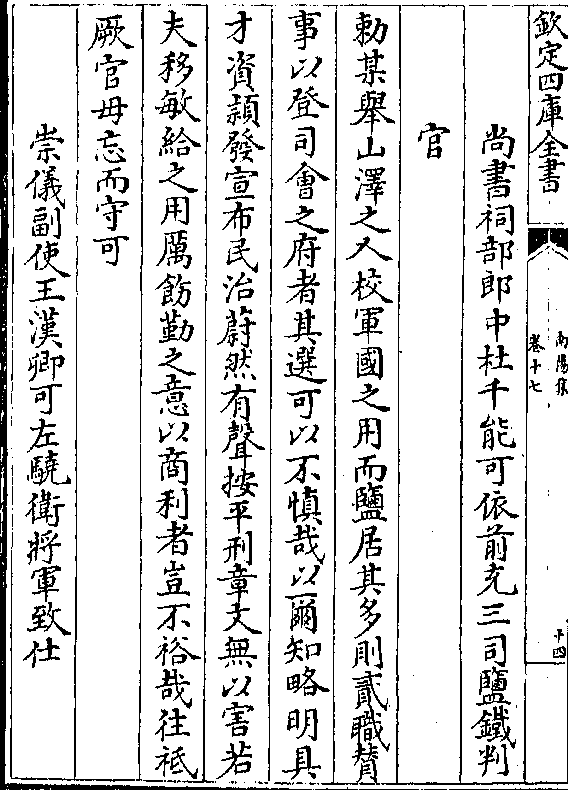 欽定四庫全書
南陽集
卷十七
十四
尚書祠部郎中杜千能可依前充三司鹽鐵判
官
勅某舉山澤之入校軍國之用而鹽居其多則貳職贊
事以登司會之府者其選可以不慎哉以爾知略明具
才資頴發宣布民治蔚然有聲按平刑章文無以害若
夫移敏給之用厲飭勤之意以商利者豈不裕哉往祗
厥官毋忘而守可
崇儀副使王漢卿可左驍衛將軍致仕